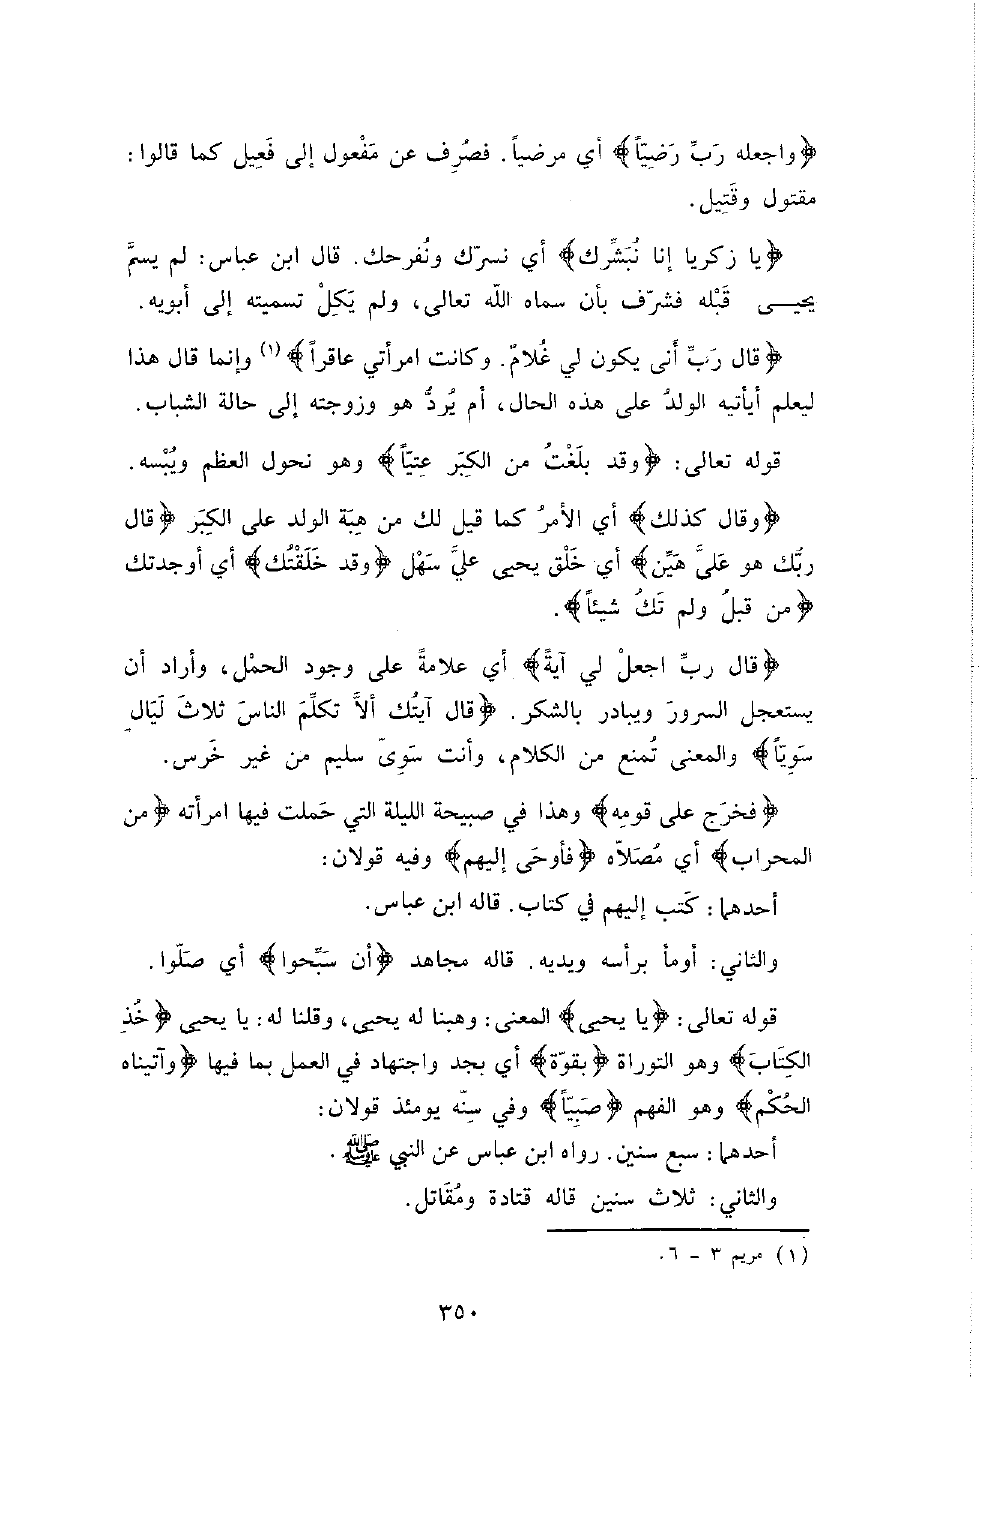 ﴿واجعله رَبِّ رَضِيّاً﴾ أي مرضياً. فصُرِف عن مَفْعول إلى فَعِيل كما قالوا:
مقتول وقَتِيل.
﴿يا زكريا إنا نُبَشِّرك﴾ أي نسرّك ونُفرحك. قال ابن عباس: لم يسمَّ
يحيــى قَبْله فشرّف بأن سماه اللّه تعالى، ولم يَكِلْ تسميته إلى أبويه.
﴿قال رَبِّ أَنى يكون لي غُلامٌ. وكانت امرأتي عاقراً﴾(١) وإنما قال هذا
ليعلم أيأتيه الولدُ على هذه الحال، أم يُردُّ هو وزوجته إلى حالة الشباب.
قوله تعالى: ﴿وقد بلَغْتُ من الكِبَر عِتِيّاً﴾ وهو نحول العظم ويُبْسه.
﴿وقال كذلك﴾ أي الأمرُ كما قيل لك من هِبَة الولد على الكِبَر ﴿قال
ربُّك هو عَلَيَّ هَيِّن﴾ أي خَلْق يحيى عليَّ سَهْل ﴿وقد خَلَقْتُك﴾ أي أوجدتك
﴿من قبلُ ولم تَكُ شيئاً﴾.
﴿قال ربِّ اجعلْ لي آيةً﴾ أي علامةً على وجود الحمْل، وأراد أن
يستعجل السرورَ ويبادر بالشكر. ﴿قال آيتُك ألاَّ تكلِّمَ الناسَ ثلاثَ لَيَالٍ
سَوِيّاً﴾ والمعنى تُمنع من الكلام، وأنت سَوِيّ سليم من غير خَرس.
﴿فخرَج على قومِه﴾ وهذا في صبيحة الليلة التي حَملت فيها امرأته ﴿من
المحراب﴾ أي مُصَلاّه ﴿فأوحَى إليهم﴾ وفيه قولان:
أحدهما: كَتب إليهم في كتاب. قاله ابن عباس.
والثاني: أومأ برأسه ويديه. قاله مجاهد ﴿أن سَبِّحوا﴾ أي صَلّوا.
قوله تعالى: ﴿يا يحيى﴾ المعنى: وهبنا له يحيى، وقلنا له: يا يحيى ﴿خُذِ
الكِتَابَ﴾ وهو التوراة ﴿بقوّة﴾ أي بجد واجتهاد في العمل بما فيها ﴿وآتيناه
الحُكْم﴾ وهو الفهم ﴿صَبِيّاً﴾ وفي سِنّه يومئذ قولان:
أحدهما: سبع سنين. رواه ابن عباس عن النبي ﷺ.
والثاني: ثلاث سنين قاله قتادة ومُقَاتل.
(١) مريم ٣ - ٦.
٣٥٠